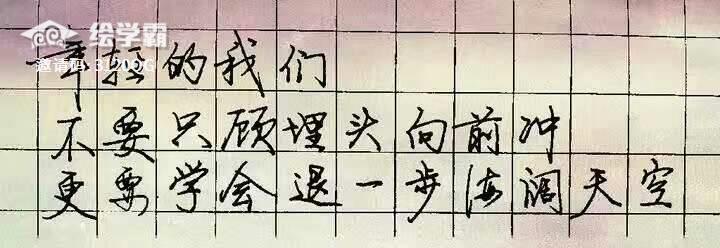 绘学霸
年轻的我们
不要只顾埋头向前冲
更要学会退一步海阔天空